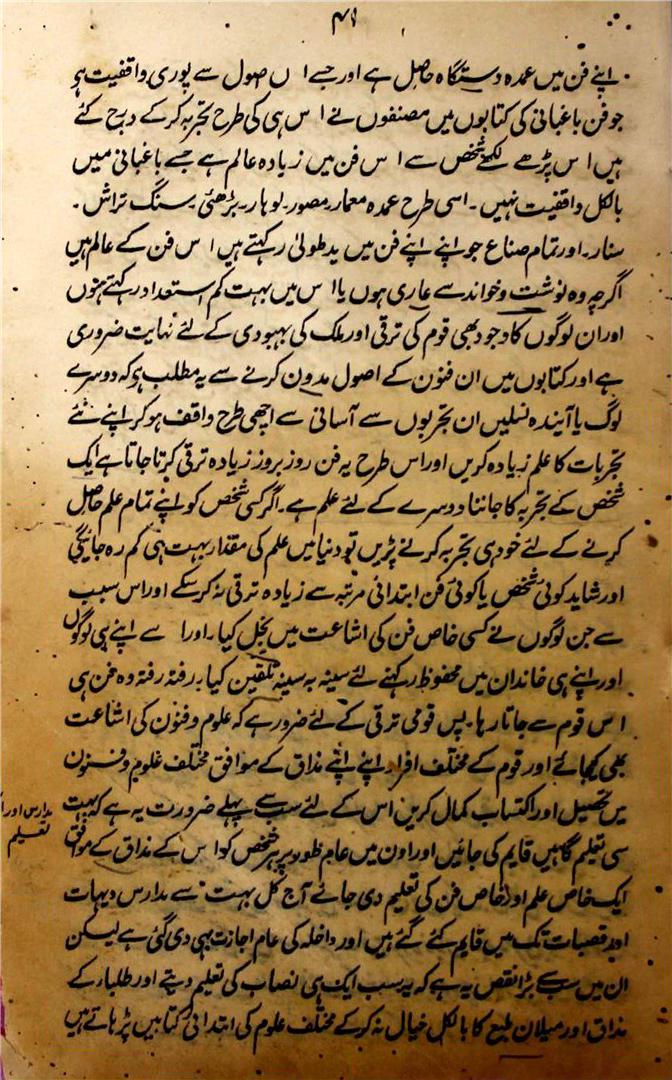 ۴۱
اپنے فن میں عمدہ دستگاہ حاصل ہے اور جسے ا ں صول سے پوری واقفیت ہو
جو فن باغبانی کی کتابوں میں مصنفوں نے ا س ہی کی طرح تجربہ کر کے درج کئے
ہیں ا س پڑھے لکھے شخص سے ا س فن میں زیادہ عالم ہے جسے باغبانی میں
بالکل واقفیت نہیں ۔ اسی طرح عمدہ معمار ۔ مصور ۔ لوہار ۔ بڑھئی ۔ سنگ تراش ۔
سنار ۔ اور تمام صناع جو اپنے اپنے فن میں ید طولیٰ رکہتے ہیں ا س فن کے عالم ہیں
اگرچہ وہ نوشت وخواند سے عاری ہوں یا ا س میں بہت کم استعداد رکہتے ہوں
اور ان لوگوں کا وجود بھی قوم کی ترقی اور ملک کی بہبودی کے لئے نہایت ضروری
ہے اور کتابوں میں ان فنون کے اصول مدون کرنے سے یہ مطلب ہو کہ دوسرے
لوگ یا آیندہ نسلیں ان تجربوں سے آسانی سے اچھی طرح واقف ہو کر اپنے نئے
تجربات کا علم زیادہ کریں اور اس طرح یہ فن روز بروز زیادہ ترقی کرتا جاتا ہے ایک
شخص کے تجربہ کا جاننا دوسرے کے لئے علم ہے ۔ اگر کسی شخص کو اپنے تمام علم حاصل
کرنے کے لئے خود ہی تجربہ کرنے پڑیں تو دنیا میں علم کی مقدار بہت ہی کم رہ جائیگی
اور شاید کوئی شخص یا کوئی فن ابتدائی مرتبہ سے زیادہ ترقی نہ کر سکے اور اس سبب
سے جن لوگوں نے کسی خاص فن کی اشاعت میں بخل کیا ۔ اور ا سے اپنے ہی لوگوں
اور اپنے ہی خاندان میں محفوظ رکہنے لئے سینہ بہ سینہ تلقین کیا ۔ رفتہ رفتہ وہ فن ہی
ا س قوم سے جاتا رہا ۔ پس قومی ترقی کے لئے ضرور ہے کہ علوم و فنون کی اشاعت
بھی کیجائے اور قوم کے مختلف افراد اپنے اپنے مذاق کے موافق مختلف علوم و فنون
میں تحصیل اور اکتساب کمال کریں اس کے لئے سب سے پہلے ضرورت یہ ہے کہ بہت
سی تعلیم گاہیں قایم کی جائیں اور اون میں عام طور پر ہر شخص کو ا س کے مذاق کے موافق
ایک خاص علم اور خاص فن کی تعلیم دی جائے آج کل بہت سے مدارس دیہات
اور قصبات تک میں قایم کئے گئے ہیں اور داخلہ کی عام اجازت بھی دی گئی ہے لیکن
ان میں سب سے بڑا نقص یہ ہے کہ یہ سب ایک ہی نصاب کی تعلیم دیتے اور طلبار کے
مذاق اور میلان طبع کا بالکل خیال نہ کر کے مختلف علوم کی ابتدائی کتابیں پڑہاتے ہیں
مدارس اور
تعلیم